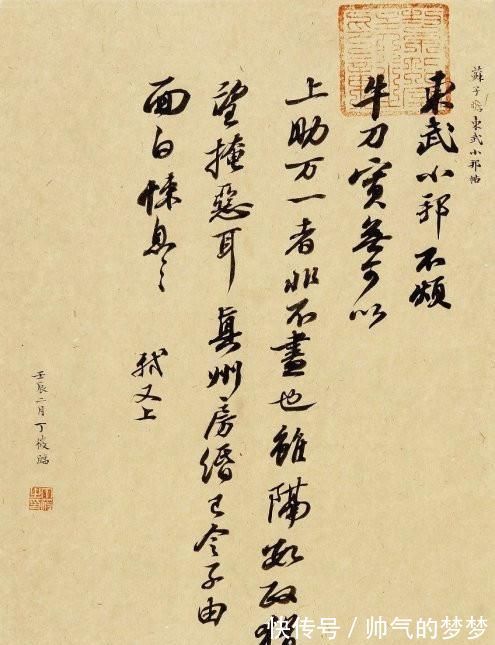 蘇子瞻東武小邦帖
東武小邦不煩
牛刀實無可以
上助万一者非不盡也雖隔數政猶
望掩惡耳真州房緡已令子由
面白悚息〻
軾又上
壬辰二月丁臨
快传号 / 帅气的梦梦